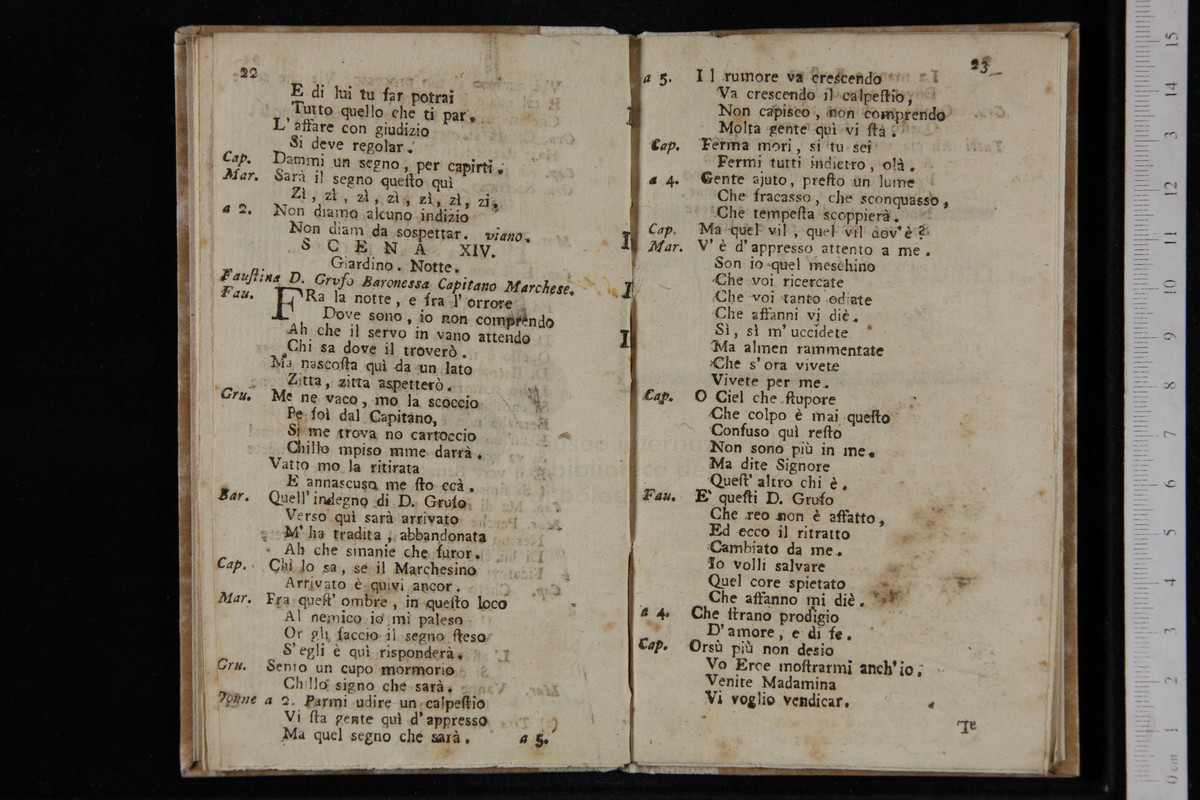 22
E di lui tu far potrai
Tutto quello che ti par.
L' affare con giudizio
Si deve regolar.
Cap. Dammi un segno, per capirti.
Mar. Sarà il segno queſto quì
Zì, zì, zì, zì, zì, zì, zì,
a 2. Non diamo alcuno indizio
Non diam da sospettar. viano.
SCENA XIV.
Giardino. Notte.
Fauſtina D. Grufo Baronessa Capitano Marchese.
Fau. FRa la notte, e fra l' orrore
Dove sono, io non comprendo
Ah che il servo in vano attendo
Chi sa dove il troverò.
Ma nascoſta quì da un lato
Zitta, zitta aspetterò.
Gru. Me ne vaco, mo la scoccio
Pe foì dal Capitano,
Si me trova no cartoccio
Chillo mpiso mme darrà.
Vatto mo la ritirata
E annascuso me ſto ccà.
Bar. Quell' indegno di D. Grufo
Verso quì sarà arrivato
M' ha tradita, abbandonata
Ah che smanie che furor.
Cap. Chi lo sa, se il Marchesino
Arrivato è quivi ancor.
Mar. Fra queſt' ombre, in queſto loco
Al nemico io mi paleso
Or gli faccio il segno ſteso
S' egli è quì risponderà.
Gru. Sento un cupo mormorio
Chillo signo che sarà.
Donne a 2. Parmi udire un calpeſtio
Vi ſta gente quì d' appresso
Ma quel segno che sarà. a 5.
23
a 5. Il rumore va crescendo
Va crescendo il calpeſtio,
Non capisco, non comprendo
Molta gente quì vi ſtà.
Cap. Ferma mori, si tu sei
Fermi tutti indietro, olà.
a 4. Gente ajuto, preſto un lume
Che fracasso, che sconquasso,
Che tempeſta scoppierà.
Cap. Ma quel vil, quel vil dov'è?
Mar. V' è d' appresso attento a me.
Son io quel meschino
Che voi ricercate
Che voi tanto odiate
Che affanni vi diè.
Sì, sì m' uccidete
Ma almen rammentate
Che s' ora vivete
Vivete per me.
Cap. O Ciel che ſtupore
Che colpo è mai queſto
Confuso quì reſto
Non sono più in me.
Ma dite Signore
Queſt' altro chi è.
Fau. E' queſti D. Grufo
Che reo non è affatto,
Ed ecco il ritratto
Cambiato da me.
Io volli salvare
Quel core spietato
Che affanno mi diè.
a 4. Che ſtrano prodigio
D' amore, e di fe.
Cap. Orsù più non desio
Vo Eroe moſtrarmi anch'io,
Venite Madamina
Vi voglio vendicar.
La